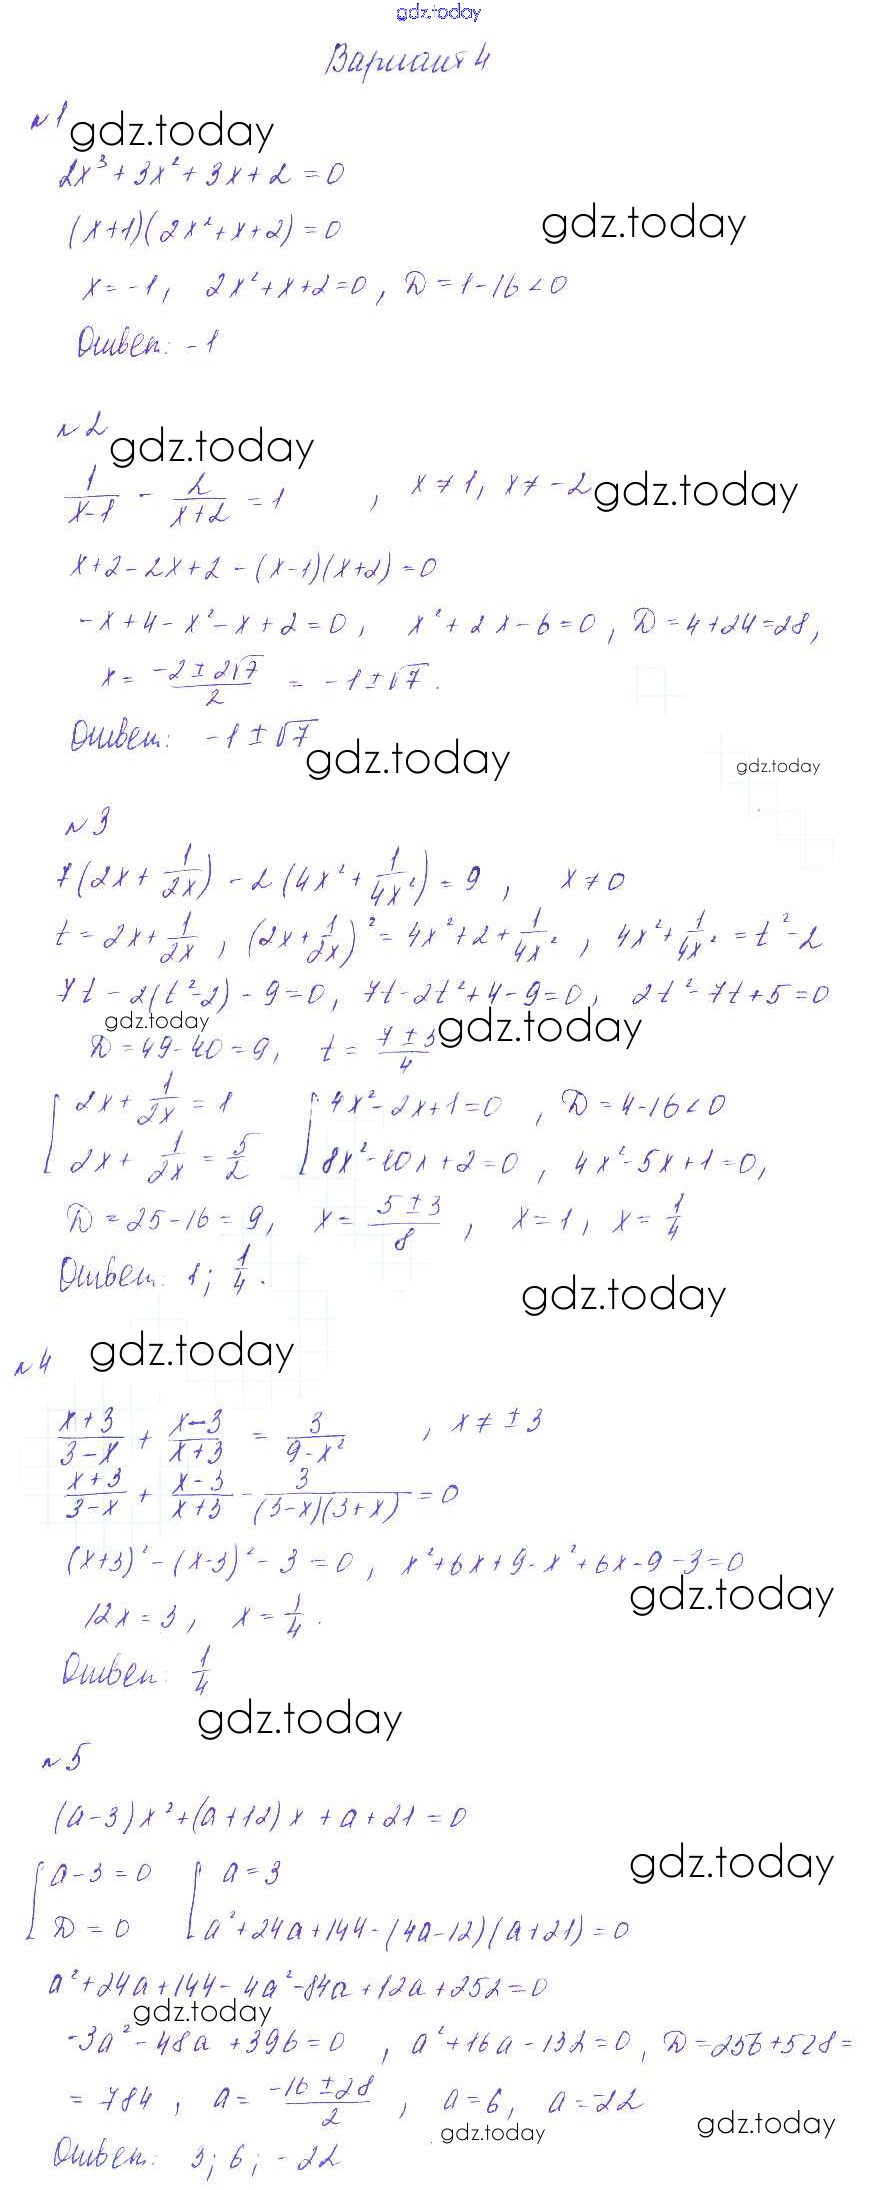 gdz.today
Вариант 4
№1 gdz.today
2x³ + 3x² + 3x + 2 = 0
(x+1)(2x² + x + 2) = 0 gdz.today
x = -1, 2x² + x + 2 = 0, D = 1 - 16 < 0
Ответ: -1
№2 gdz.today
1/(x-1) - 2/(x+2) = 1, x ≠ 1, x ≠ -2 gdz.today
x + 2 - 2x + 2 - (x-1)(x+2) = 0
-x + 4 - x² - x + 2 = 0, x² + 2x - 6 = 0, D = 4 + 24 = 28,
x = (-2 ± 2√7)/2 = -1 ± √7.
Ответ: -1 ± √7 gdz.today
gdz.today
№3
7(2x + 1/(2x)) - 2(4x² + 1/(4x²)) = 9, x ≠ 0
t = 2x + 1/(2x), (2x + 1/(2x))² = 4x² + 2 + 1/(4x²), 4x² + 1/(4x²) = t² - 2
7t - 2(t² - 2) - 9 = 0, 7t - 2t² + 4 - 9 = 0, 2t² - 7t + 5 = 0
gdz.today gdz.today
D = 49 - 40 = 9, t = (7 ± 3)/4
[ 2x + 1/(2x) = 1 [ 4x² - 2x + 1 = 0, D = 4 - 16 < 0
2x + 1/(2x) = 5/2 8x² - 10x + 2 = 0, 4x² - 5x + 1 = 0,
D = 25 - 16 = 9, x = (5 ± 3)/8, x = 1, x = 1/4
Ответ: 1; 1/4.
gdz.today
№4 gdz.today
(x+3)/(3-x) + (x-3)/(x+3) = 3/(9-x²), x ≠ ± 3
(x+3)/(3-x) + (x-3)/(x+3) - 3/((3-x)(3+x)) = 0
(x+3)² - (x-3)² - 3 = 0, x² + 6x + 9 - x² + 6x - 9 - 3 = 0
gdz.today
12x = 3, x = 1/4.
Ответ: 1/4
gdz.today
№5
(a-3)x² + (a+12)x + a + 21 = 0
[ a - 3 = 0 [ a = 3 gdz.today
D = 0 a² + 24a + 144 - (4a-12)(a+21) = 0
a² + 24a + 144 - 4a² - 84a + 12a + 252 = 0
gdz.today
-3a² - 48a + 396 = 0, a² + 16a - 132 = 0, D = 256 + 528 =
= 784, a = (-16 ± 28)/2, a = 6, a = -22
gdz.today gdz.today
Ответ: 3; 6; -22